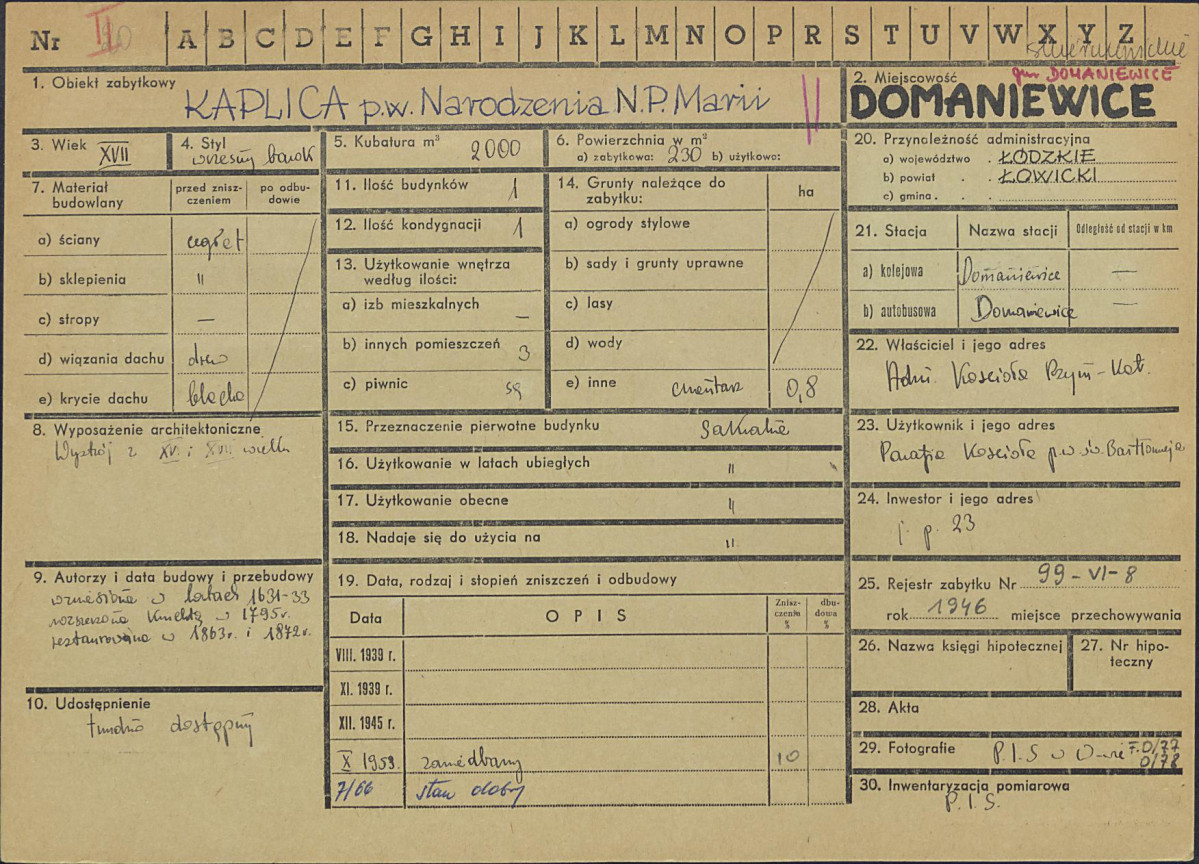 Nr II
A B C D E F G H I J K L M N O P R S T U V W X Y Z
skierniewickie
1. Obiekt zabytkowy
KAPLICA p.w. Narodzenia N.P. Marii
2. Miejscowość
gm DOMANIEWICE
DOMANIEWICE
3. Wiek XVII
4. Styl wczesny barok
5. Kubatura m³ 2000
6. Powierzchnia w m²
a) zabytkowa: 230 b) użytkowa:
7. Materiał budowlany
przed zniszczeniem
po odbudowie
a) ściany cegła
b) sklepienia "
c) stropy —
d) wiązania dachu drew
e) krycie dachu blacha
8. Wyposażenie architektoniczne
Wystrój z XVI i XVII wieku
9. Autorzy i data budowy i przebudowy
wzniesiona w latach 1631-33
rozszerzona kruchtą w 1795r.
restaurowana w 1863r. i 1872r.
10. Udostępnienie
trudno dostępny
11. Ilość budynków 1
12. Ilość kondygnacji 1
13. Użytkowanie wnętrza
według ilości:
a) izb mieszkalnych —
b) innych pomieszczeń 3
c) piwnic są
14. Grunty należące do
zabytku:
ha
a) ogrody stylowe
b) sady i grunty uprawne
c) lasy
d) wody
e) inne cmentarz 0,8
15. Przeznaczenie pierwotne budynku sakralne
16. Użytkowanie w latach ubiegłych "
17. Użytkowanie obecne "
18. Nadaje się do użycia na "
19. Data, rodzaj i stopień zniszczeń i odbudowy
Data
OPIS
Zniszczeniu %
dbudowa %
VIII. 1939 r.
XI. 1939 r.
XII. 1945 r.
X 1959. zaniedbany 10
7/66 stan dobry
20. Przynależność administracyjna
a) województwo . ŁÓDZKIE
b) powiat . . ŁOWICKI
c) gmina . . .
21. Stacja
Nazwa stacji
Odległość od stacji w km
a) kolejowa Domaniewice —
b) autobusowa Domaniewice —
22. Właściciel i jego adres
Adm. Kościoła Rzym-Kat.
23. Użytkownik i jego adres
Parafia Kościoła p.w. św. Bartłomieja
24. Inwestor i jego adres
j. p. 23
25. Rejestr zabytku Nr 99-VI-8
rok 1946 miejsce przechowywania
26. Nazwa księgi hipotecznej
27. Nr hipoteczny
28. Akta
29. Fotografie P.I.S w F.0/77
0/78
30. Inwentaryzacja pomiarowa
P.I.S.